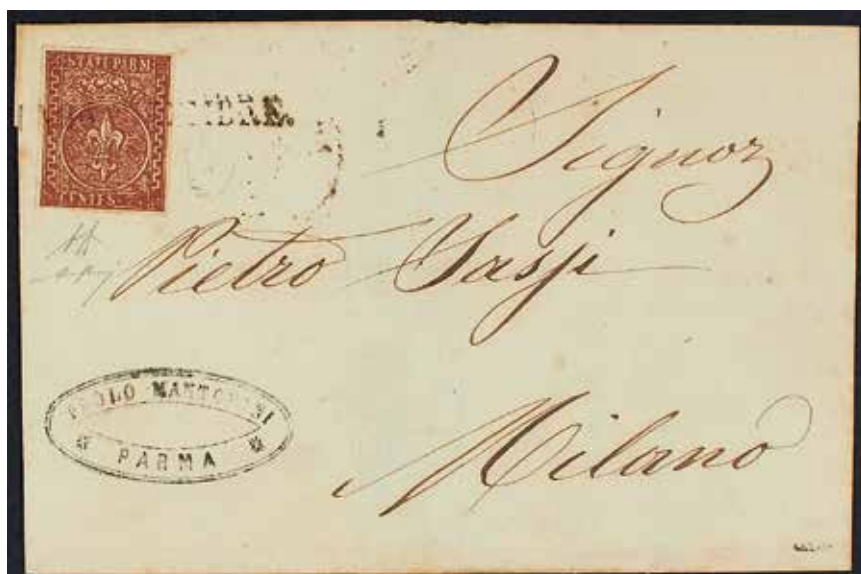 STATI PARM
Signor
Pietro Sassi
Milano
PAOLO MANTOVANI
PARMA